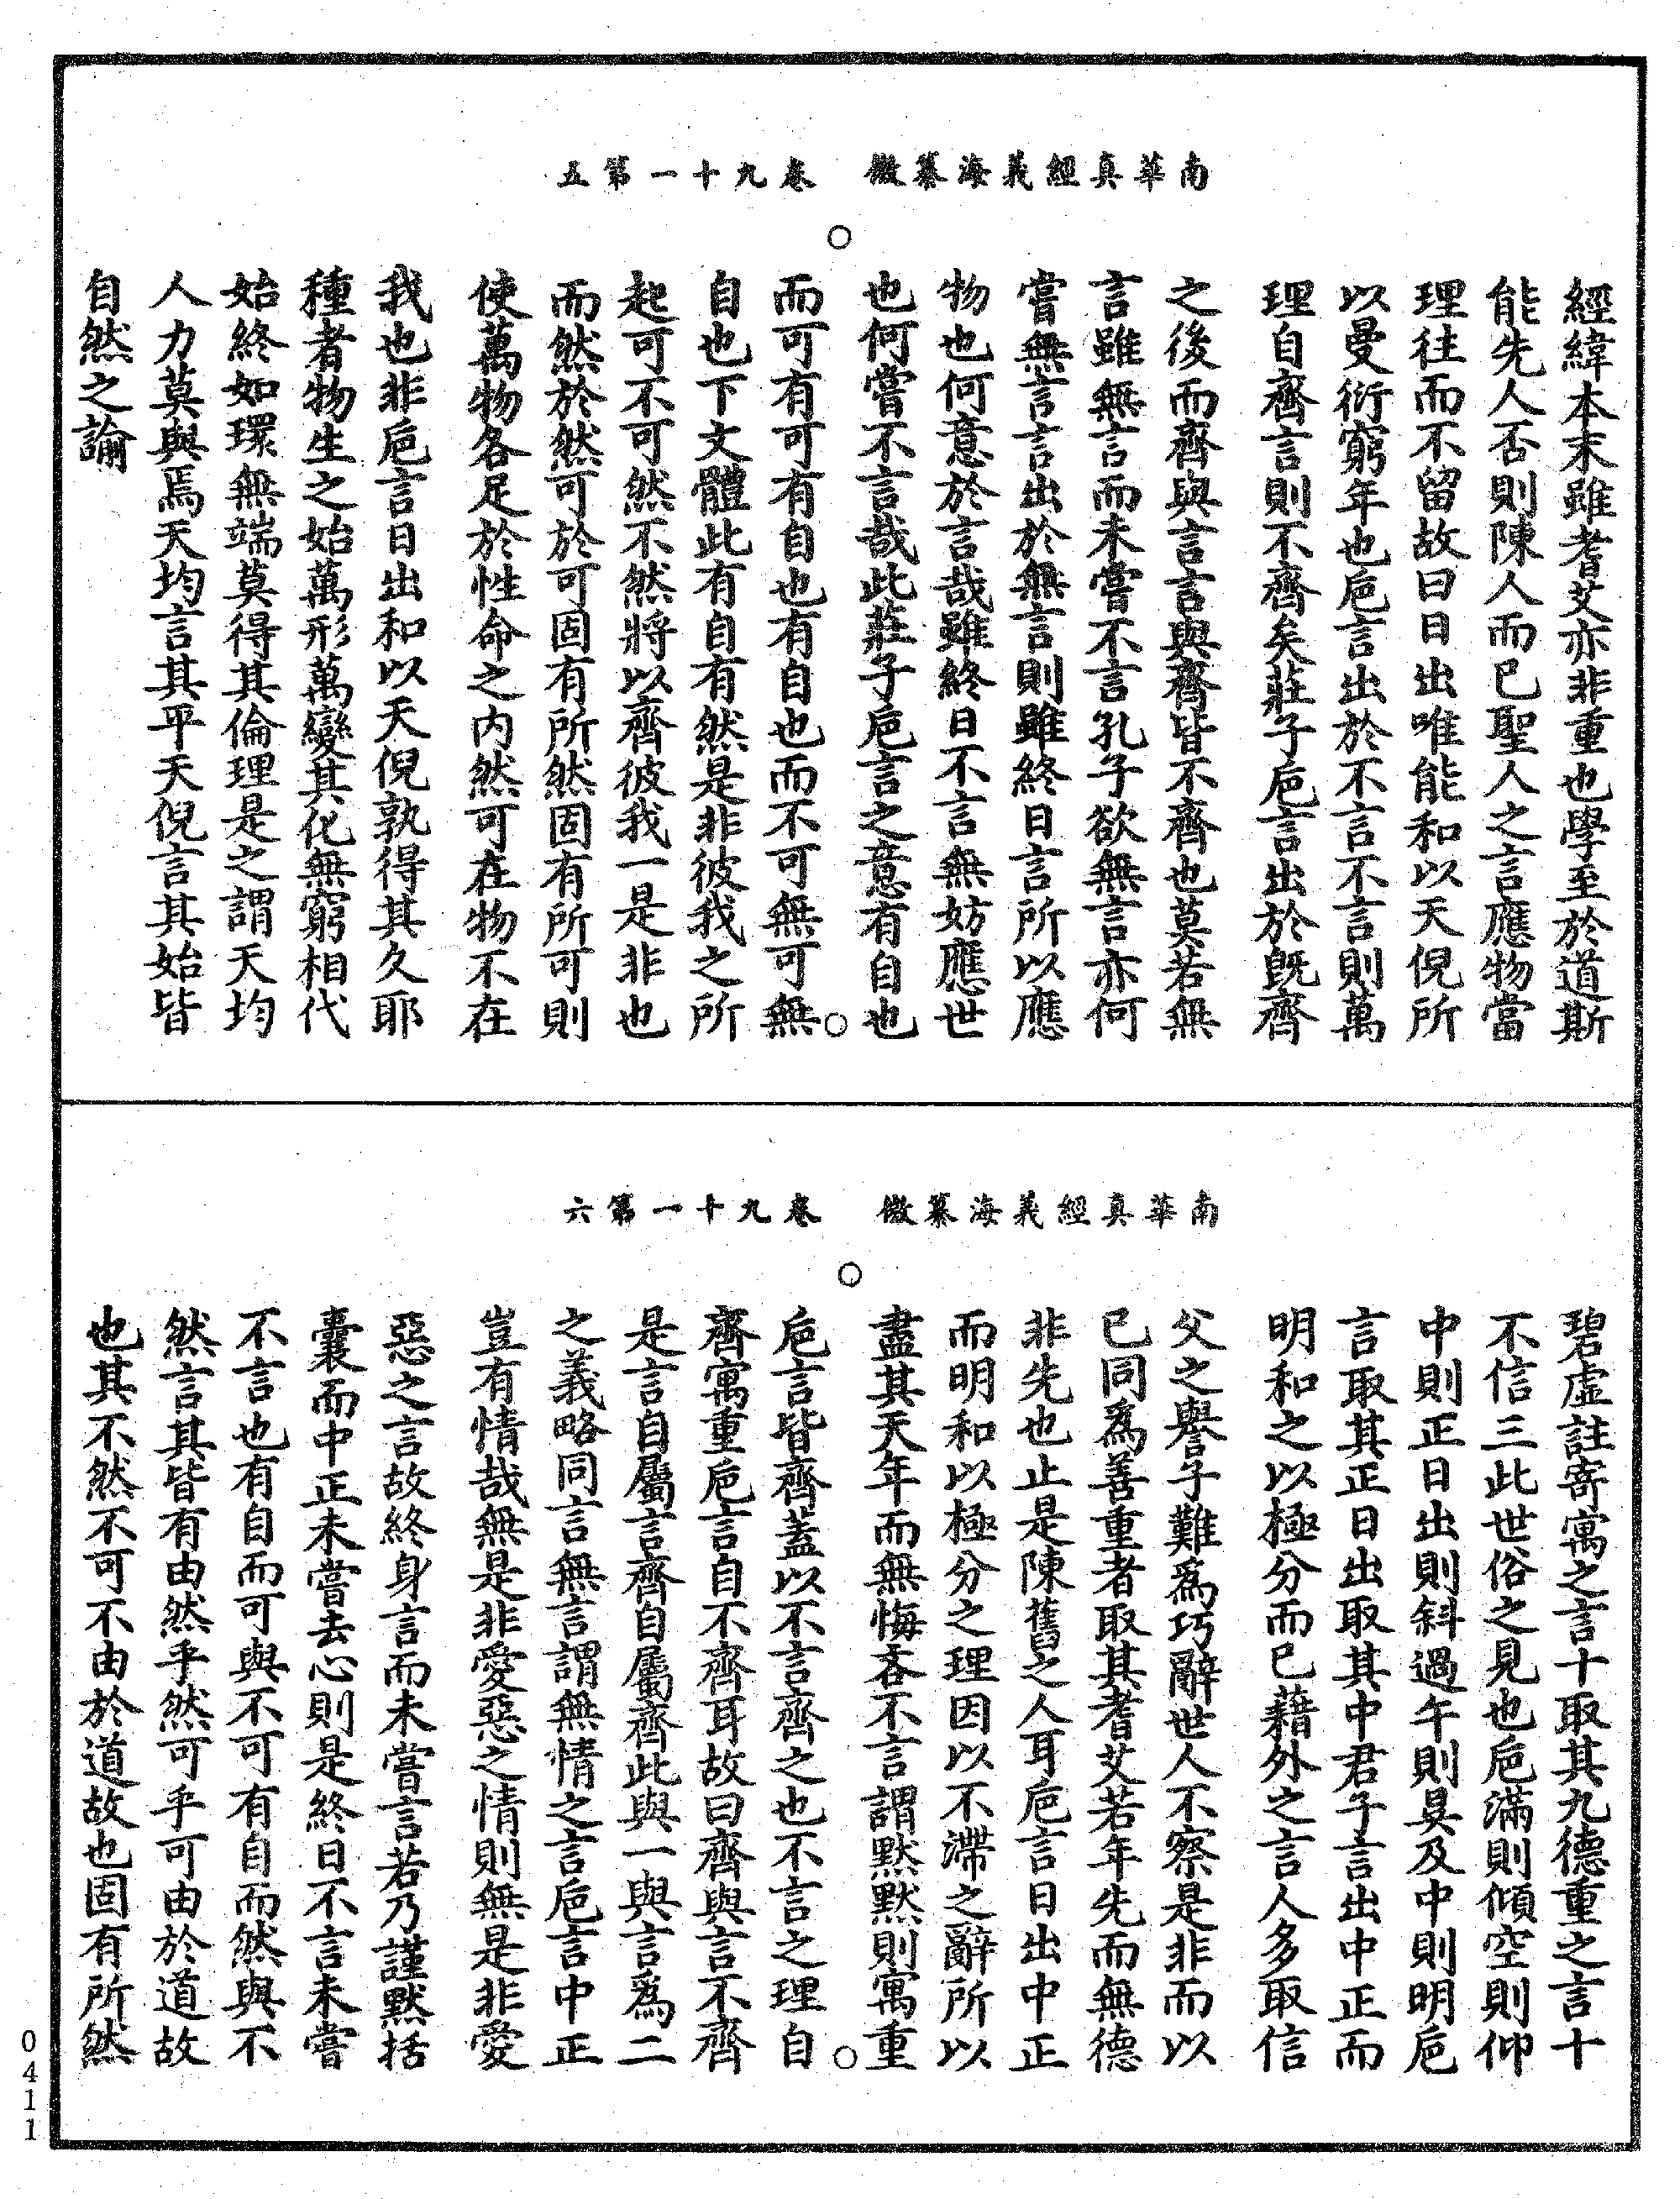 南華真經義海纂微　卷九十一第五
經緯本末雖耆艾亦非重也學至於道斯
能先人否則陳人而已聖人之言應物當
理往而不留故曰日出唯能和以天倪所
以曼衍窮年也巵言出於不言不言則萬
理自齊言則不齊矣莊子巵言出於既齊
之後而齊與言言與齊皆不齊也莫若無
言雖無言而未嘗不言孔子欲無言亦何
嘗無言言出於無言則雖終日言所以應
物也何意於言哉雖終日不言無妨應世
也何嘗不言哉此莊子巵言之意有自也
而可有可有自也有自也而不可無可無
自也下文體此有自有然是非彼我之所
起可不可然不然將以齊彼我一是非也
而然於然可於可固有所然固有所可則
使萬物各足於性命之內然可在物不在
我也非巵言日出和以天倪孰得其久耶
種者物生之始萬形萬變其化無窮相代
始終如環無端莫得其倫理是之謂天均
人力莫與焉天均言其平天倪言其始皆
自然之論
南華真經義海纂微　卷九十一第六
碧虛註寄寓之言十取其九德重之言十
不信三此世俗之見也巵滿則傾空則仰
中則正日出則斜過午則昃及中則明巵
言取其正日出取其中君子言出中正而
明和之以極分而已藉外之言人多取信
父之譽子難為巧辭世人不察是非而以
已同為善重者取其耆艾若年先而無德
非先也止是陳舊之人耳巵言日出中正
而明和以極分之理因以不滯之辭所以
盡其天年而無悔吝不言謂默默則寓重
巵言皆齊蓋以不言齊之也不言之理自
齊寓重巵言自不齊耳故曰齊與言不齊
是言自屬言齊自屬齊此與一與言為二
之義略同言無言謂無情之言巵言中正
豈有情哉無是非愛惡之情則無是非愛
惡之言故終身言而未嘗言若乃謹默括
囊而中正未嘗去心則是終日不言未嘗
不言也有自而可與不可有自而然與不
然言其皆有由然乎然可乎可由於道故
也其不然不可不由於道故也固有所然
0411